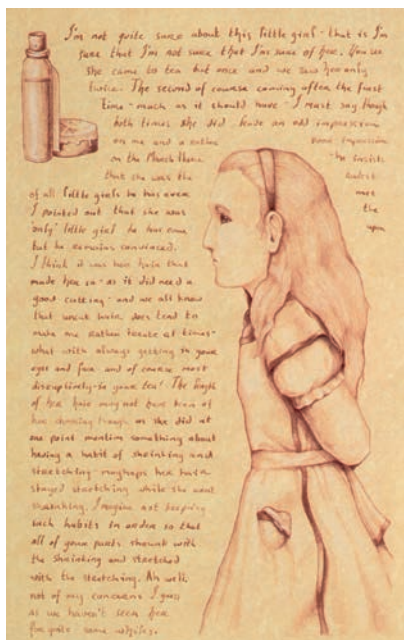 I'm not quite sure about this little girl - that is I'm
sure that I'm not sure that I'm sure of her. You see
she came to tea but once and we saw her only
twice. The second of course coming after the first
time - much as it should have - I must say though
both times she did leave an odd impression
on me and a rather more impression
on the March Hare. he insists
that she was the rudest
of all little girls he has ever met
I pointed out that she was the
'only' little girl he has come upon
but he remains convinced.
I think it was her hair that
made her so - as it did need a
good cutting - and we all know
that uncut hair does tend to
make one rather irate at times -
what with always getting in your
eyes and face and of course most
disruptively - in your tea! The length
of her hair may not have been of
her choosing though as she did at
one point mention something about
having a habit of shrinking and
stretching - perhaps her hair
stayed stretching while she went
shrinking. Imagine not keeping
such habits in order so that
all of your parts shrunk with
the shrinking and stretched
with the stretching. Ah well,
not of my concern I guess
as we haven't seen her
for quite some